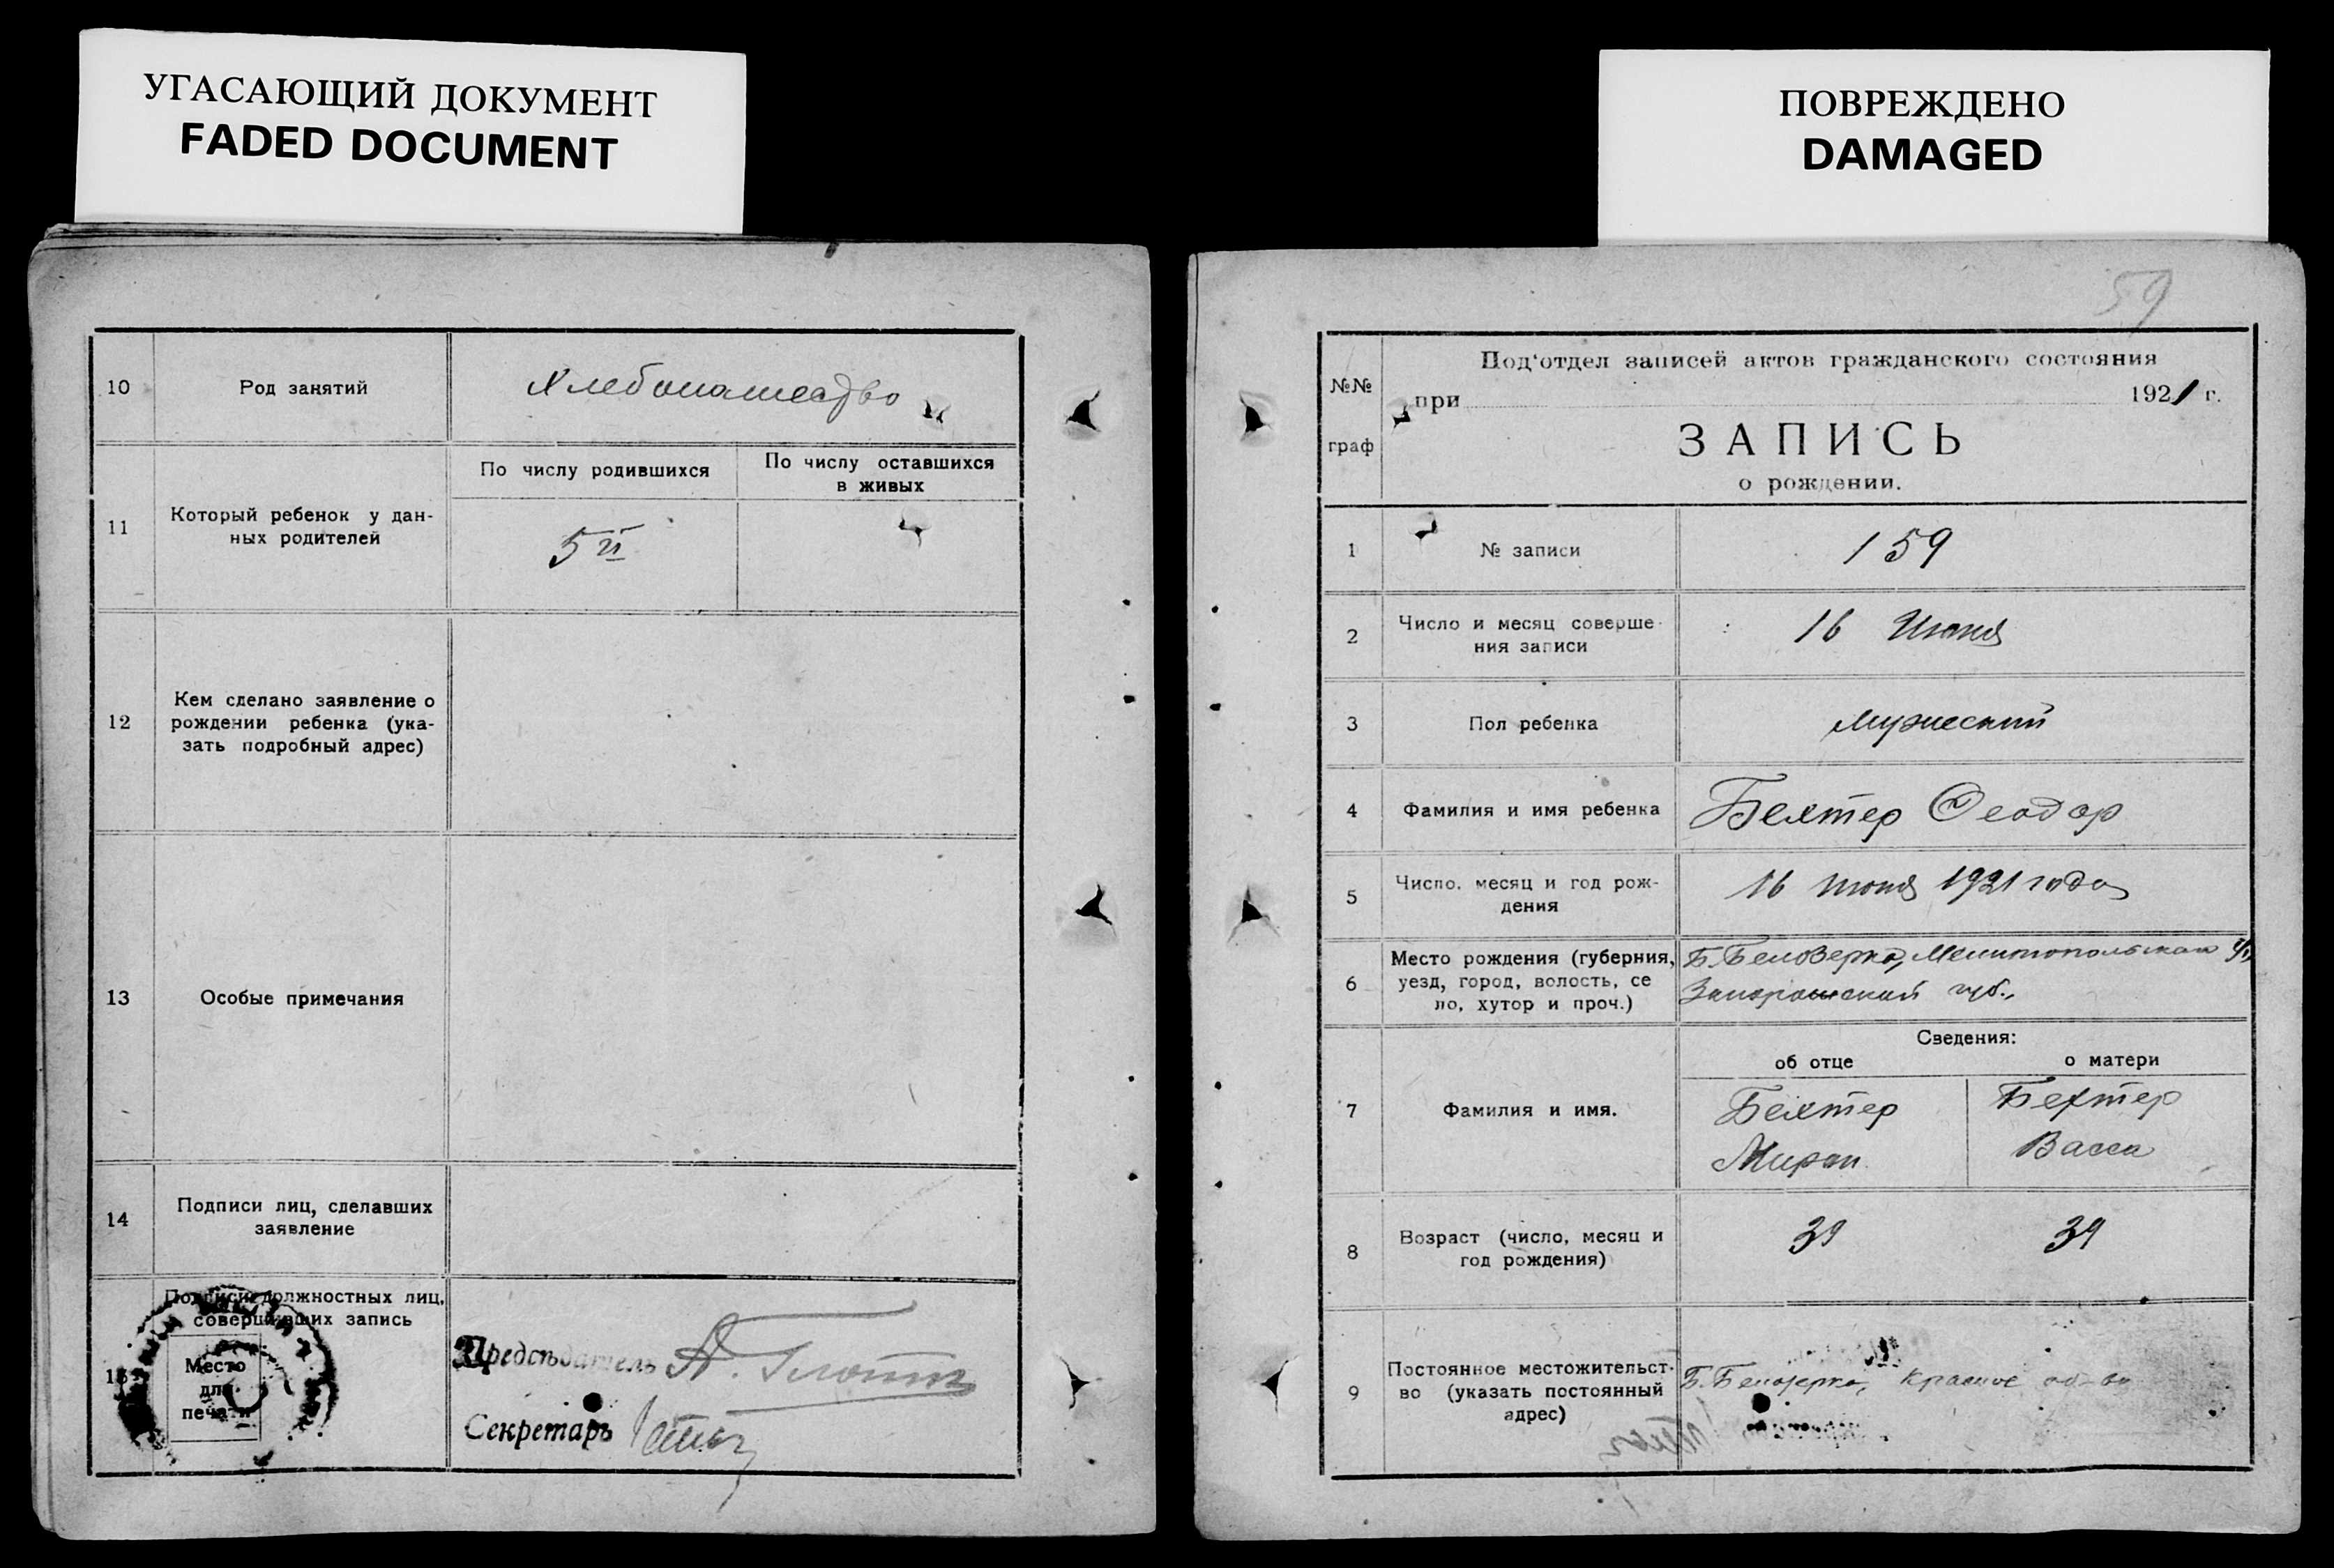 УГАСАЮЩИЙ ДОКУМЕНТ
FADED DOCUMENT
10
Род занятий
Хлебопашество
11
Который ребенок у дан-
ных родителей
По числу родившихся
По числу оставшихся
в живых
5й
12
Кем сделано заявление о
рождении ребенка (ука-
зать подробный адрес)
13
Особые примечания
14
Подписи лиц, сделавших
заявление
15
Подписи должностных лиц,
совершивших запись
Место
для
печати
Председатель
Секретарь
ПОВРЕЖДЕНО
DAMAGED
59
№№
граф
Под'отдел записей актов гражданского состояния
при 1921 г.
ЗАПИСЬ
о рождении.
1
№ записи
159
2
Число и месяц соверше-
ния записи
16 Июня
3
Пол ребенка
мужеский
4
Фамилия и имя ребенка
Бехтер Феодор
5
Число, месяц и год рож-
дения
16 июня 1921 года
6
Место рождения (губерния,
уезд, город, волость, се
ло, хутор и проч.)
Б. Белозерка, Мелитопольскаго у.,
губ.,
Сведения:
об отце
о матери
7
Фамилия и имя.
Бехтер
Мирон
Бехтер
Васса
8
Возраст (число, месяц и
год рождения)
39
39
9
Постоянное местожительст-
во (указать постоянный
адрес)
Б. Белозерка, Красное об-во